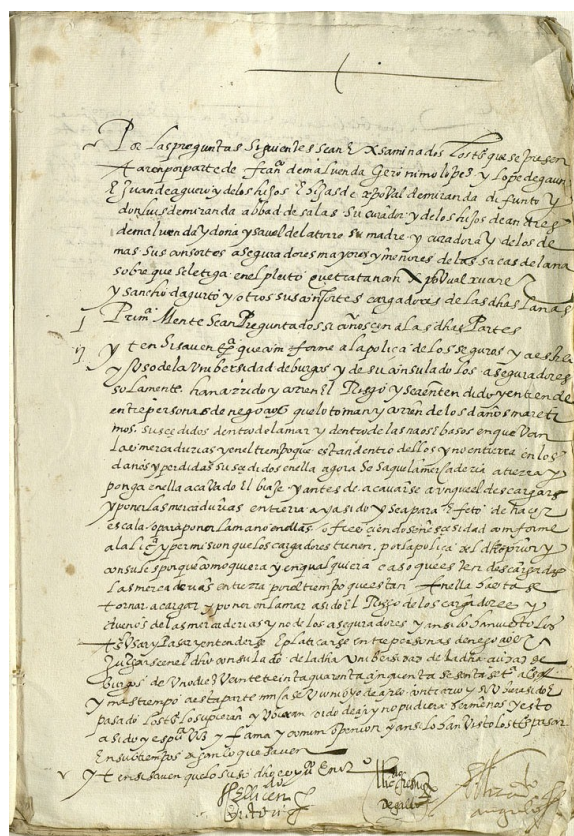 Por las preguntas siguientes sean Exsaminados los tºs que se presen
taren por parte de franco de maluenda Geronimo lopez y lope de gauna
E Juan de aguero y de los hijos E hijas de xpoval de miranda difunto y
don luis de miranda abbad de salas su curador y de los hijos de andres
de maluenda y doña ysavel de la torre su madre y curadora y de los de
mas sus consortes aseguradores mayores y menores de las sacas de lana
sobre que se letiga en el pleito que tratan con xpoval xuarez
y sancho daquito y otros sus consortes cargadores de las dhas lanas
I Prim.a Mente sean Preguntados si conoscen a las dhas Partes
II yten si saven que conforme a la poliça de los seguros y a estilo
y uso de la Unibersidad de burgos y de su consulado los aseguradores
solamente han corrido y corren El Riesgo y se a entendido y entiende
entre personas de negoçios que lo toman y corren de los daños mareti
mos suscedidos dentro de la mar y dentro de las naos E basos en que van
las mercadurias y en el tiempo que estan dentro dellos y no en tierra en los
daños y perdidas suscedidos en ella agora se saque la mercaderia a tierra y
ponga en ella acavado El biaje y antes de acavarse aunque el descargar
y poner las mercadurias en tierra aya sido y sea para Efeto de hacer
escala o para poner la mano en ellas ofreciendose nescesidad conforme
a la liç.a y permision que los cargadores tienen por la poliça del dho prior y
consules porque como quiera y en qualquiera caso que esten descargadas
las mercadurias en tierra por el tiempo que estan en ella hasta se
tornar a cargar y poner en la mar a sido El Riesgo de los cargadores y
dueños de las mercaderias y no de los aseguradores y ansi lo han visto los
tºs usar y platicar y entenderse E platicarse entre personas de negoçios
Juzgarse en el dho consulado de la dha Unibersidad de la dha ciudad de
burgos de uno diez veinte treinta quarenta cinquenta sesenta setenta años
y mas tiempo a esta parte
pasado los tºs lo supieran y no pudiera ser menos y esto
a sido y es pu.co y fama y comun opinion y ansi lo han visto los tºs pasar
En sus tiempos digan lo que saven
yten si saven que lo suso dho